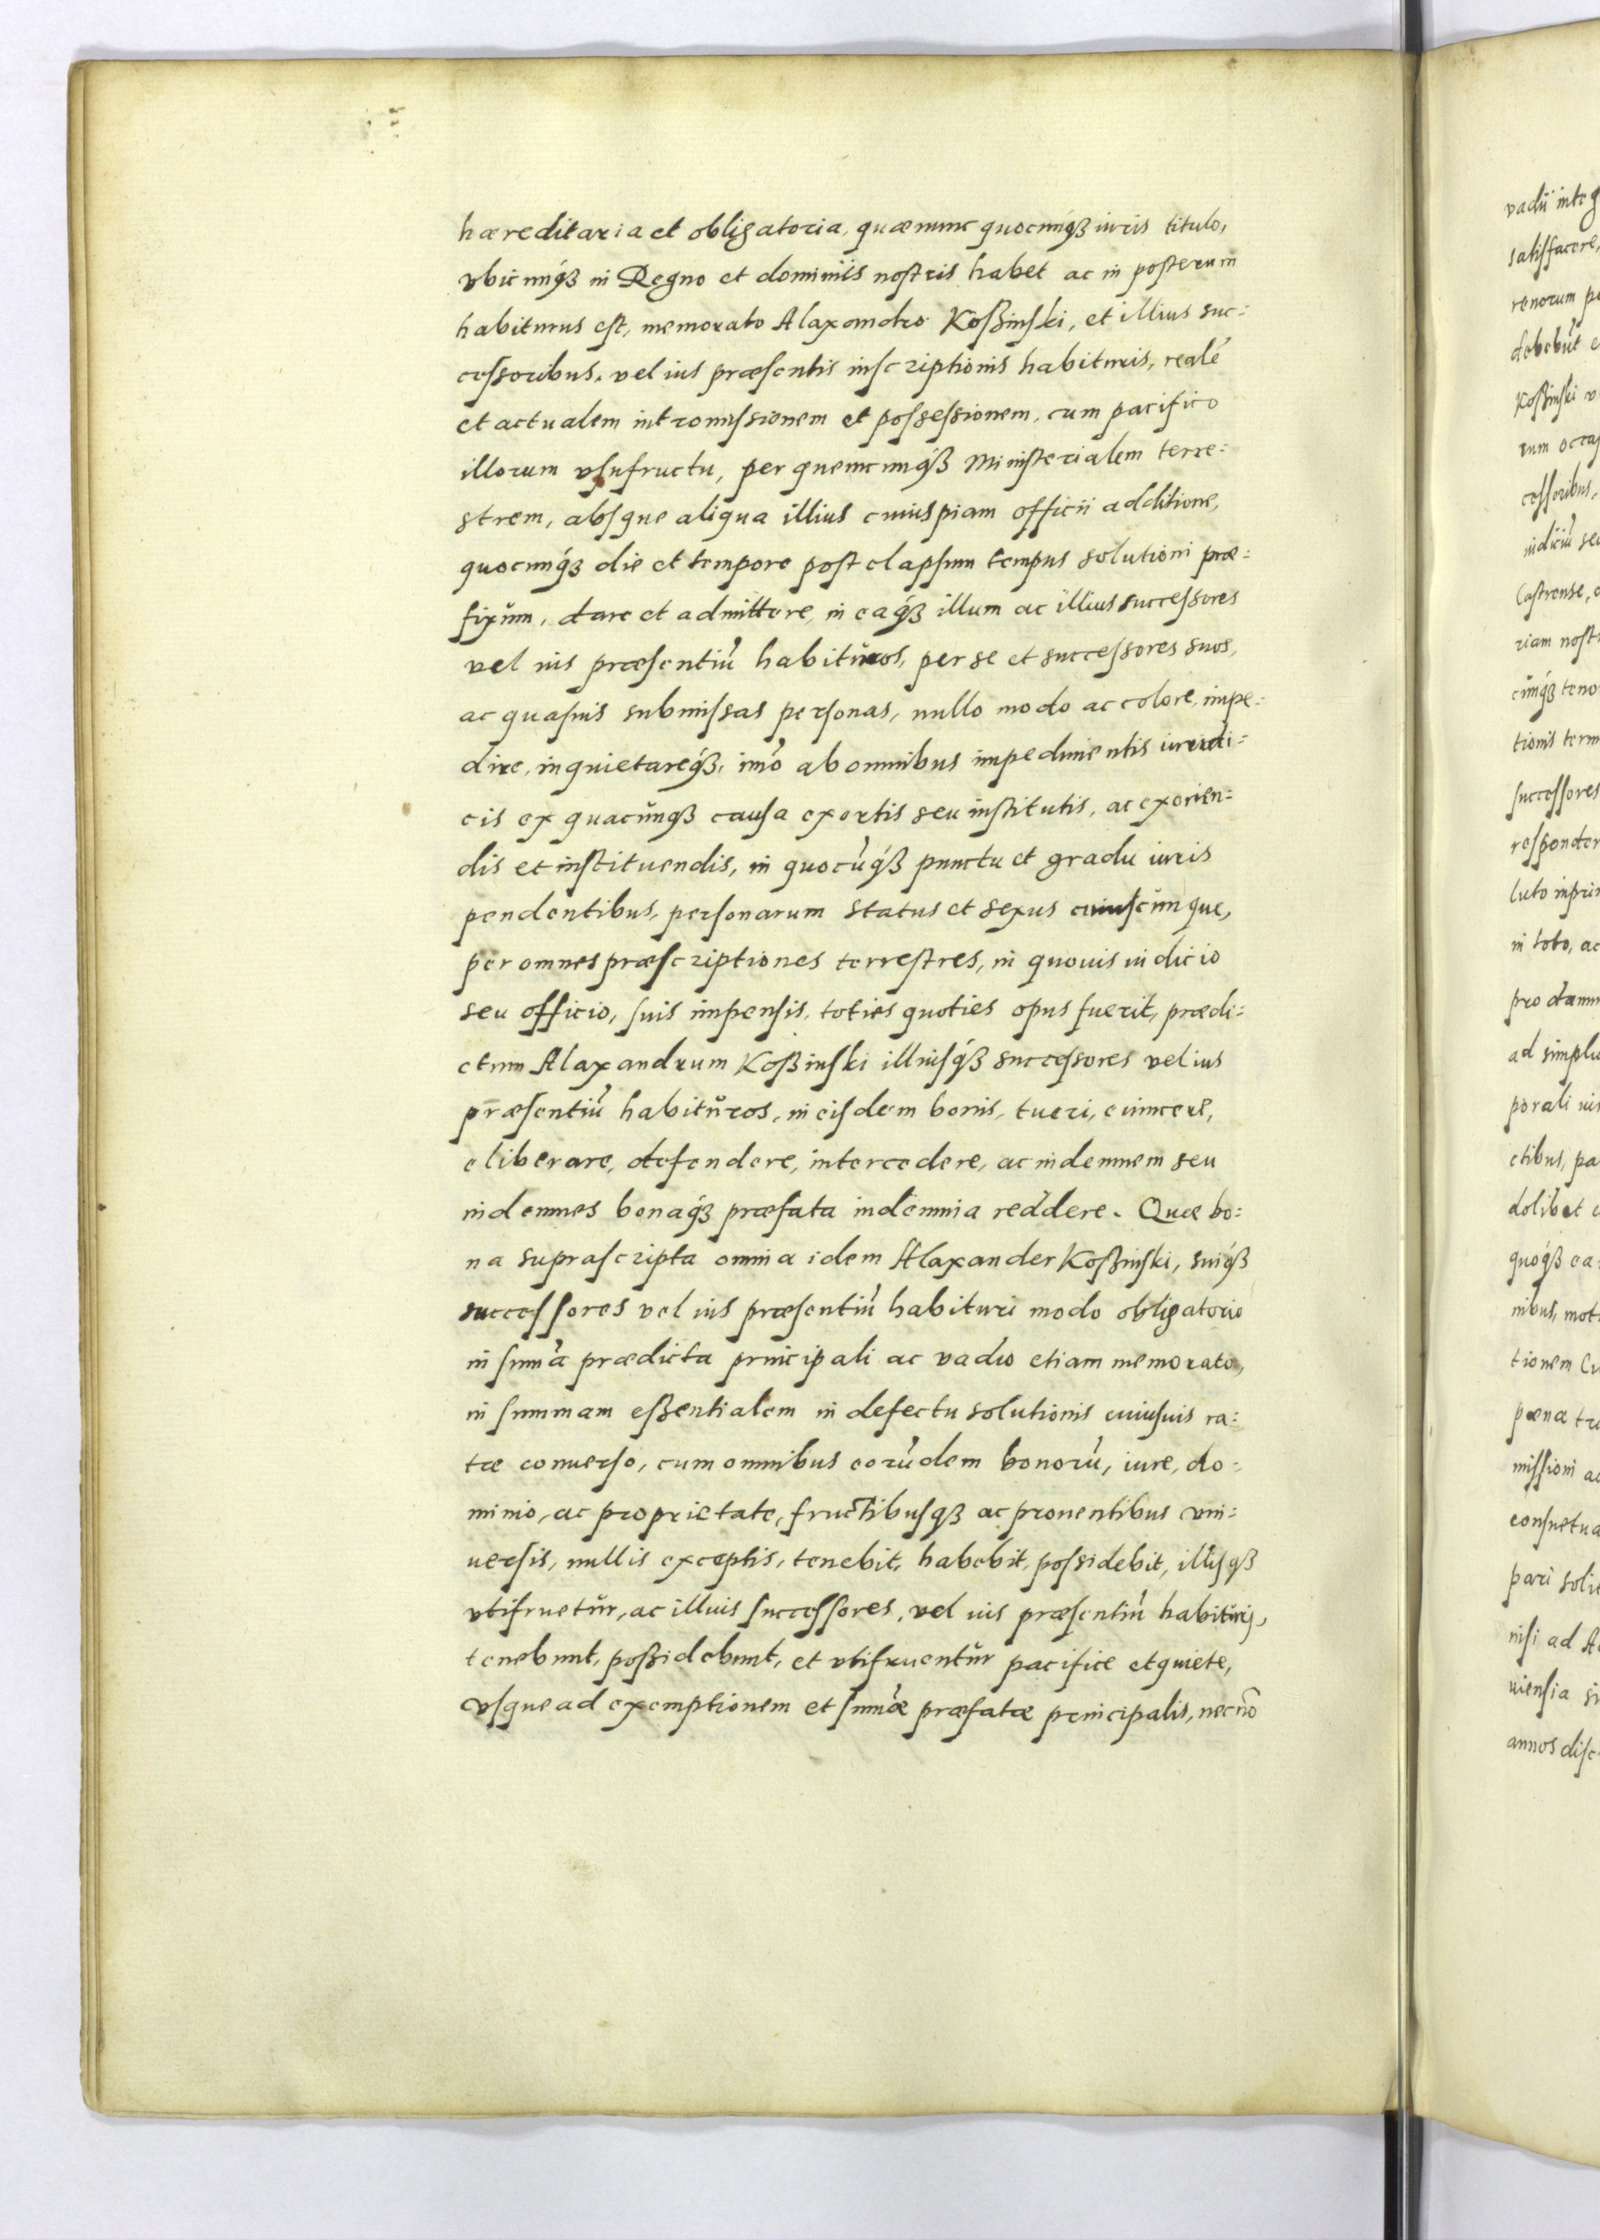 hæreditaria et obligatoria, quæ nunc quocunq́ꝫ iuris titulo,
vbicunq́ꝫ in Regno et dominiis nostris habet ac in posterum
habiturus est, memorato Alaxandro Koßinski, et illius suc:
cessoribus, vel ius præsentis inscriptionis habituris, realẽ
et actualem intromissionem et possessionem, cum pacifico
illorum vsufructu, per quemcunq́ꝫ Ministerialem terre:
strem, absque aliqua illius cuiuspiam officii additione,
quocunq́ꝫ die et tempore post elapsum tempus solutioni præ:
fixum, dare et admittere, in eaq́ꝫ illum ac illius successores
vel ius præsentiũ habituros, per se et successores suos,
ac quasuis submissas personas, nullo modo ac colore, impe:
dire, inquietareq́ꝫ, imò ab omnibus impedimentis iuridi:
cis ex quacunqꝫ causa exortis seu institutis, ac exorien:
dis et instituendis, in quocũq́ꝫ punctu et gradu iuris
pendentibus, personarum status et sexus cuiuscunque,
per omnes præscriptiones terrestres, in quouis iudicio
seu officio, suis impensis, toties quoties opus fuerit, prædi:
ctum Alaxandrum Koßinski illiusq́ꝫ successores vel ius
præsentiũ habituros, in eisdem bonis, tueri, euincere,
eliberare, defendere, intercedere, ac indemnem seu
indemnes bonaq́ꝫ præfata indemnia reddere. Quæ bo:
na suprascripta omnia idem Alaxander Koßinski, suiq́ꝫ
successores vel ius præsentiũ habituri modo obligatorio
in sum̃a prædicta principali ac vadio etiam memorato,
in summam eßentialem in defectu solutionis cuiusuis ra:
tæ conuerso, cum omnibus eorũdem bonorũ, iure, do:
minio, ac proprietate, fructibusqꝫ ac prouentibus vni:
uersis, nullis exceptis, tenebit, habebit, possidebit, illisqꝫ
vtifruetur, ac illius successores, vel ius præsentiũ habituri,
tenebunt, poßidebunt, et vtifruentur pacifice et quiete,
vsque ad exemptionem et sum̃æ præfatæ principalis, nec nõ